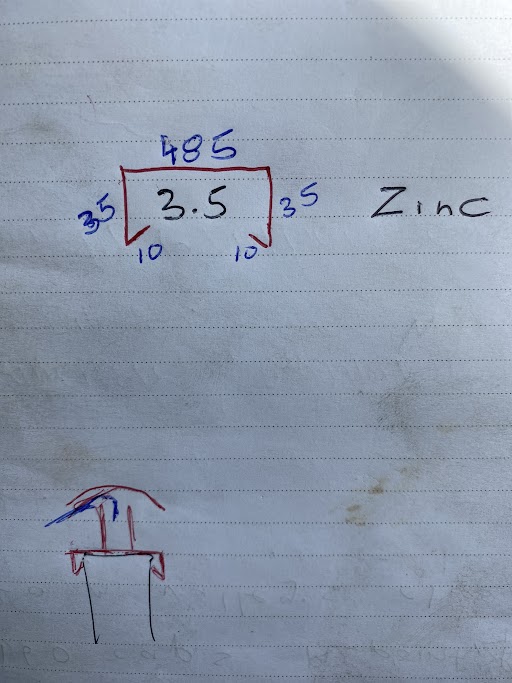 485
35 3.5 35 Zinc
10 10